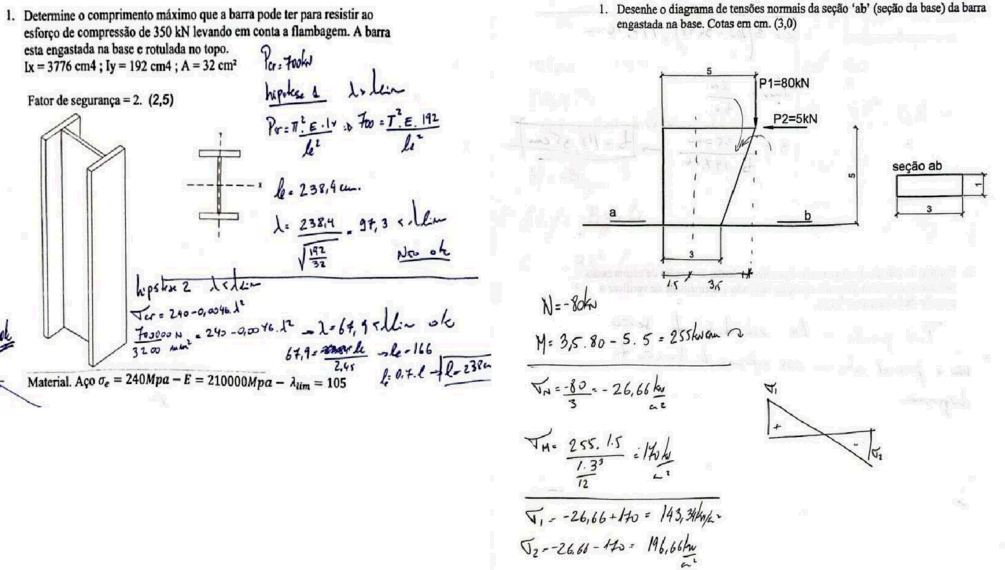 1. Determine o comprimento máximo que a barra pode ter para resistir ao
esforço de compressão de 350 kN levando em conta a flambagem. A barra
esta engastada na base e rotulada no topo.
Ix = 3776 cm4 ; Iy = 192 cm4 ; A = 32 cm²
Fator de segurança = 2. (2,5)
Pcr = 700kN
hipotese 1 λ > λlim
Pcr = π². E . Iy / le² ⇒ 700 = π². E. 192 / le²
le = 238,4 cm.
λ = 238,4 / √(192/32) = 97,3 < λlim
Não ok
Y
X
hipotese 2 λ ≤ λlim
σcr = 240 - 0,0046.λ²
700000 N / 3200 mm² = 240 - 0,0046.λ² → λ = 67,9 < λlim ok
67,9 = le / 2,45 → le = 166
le = 0,7.l → l = 238cm
Material. Aço σe = 240Mpa – E = 210000Mpa – λlim = 105
1. Desenhe o diagrama de tensões normais da seção ‘ab’ (seção da base) da barra
engastada na base. Cotas em cm. (3,0)
5
P1=80kN
P2=5kN
5
seção ab
1
3
a
b
3
1.5
3,5
N = -80kN
M = 3,5 . 80 - 5 . 5 = 255kNcm
σN = -80 / 3 = -26,66 kN/cm²
σM = 255 . 1.5 / (1.3³ / 12) = 170 kN/cm²
σ1
+
-
σ2
σ1 = -26,66 + 170 = 143,34kN/cm²
σ2 = -26,66 - 170 = 196,66 kN/cm²